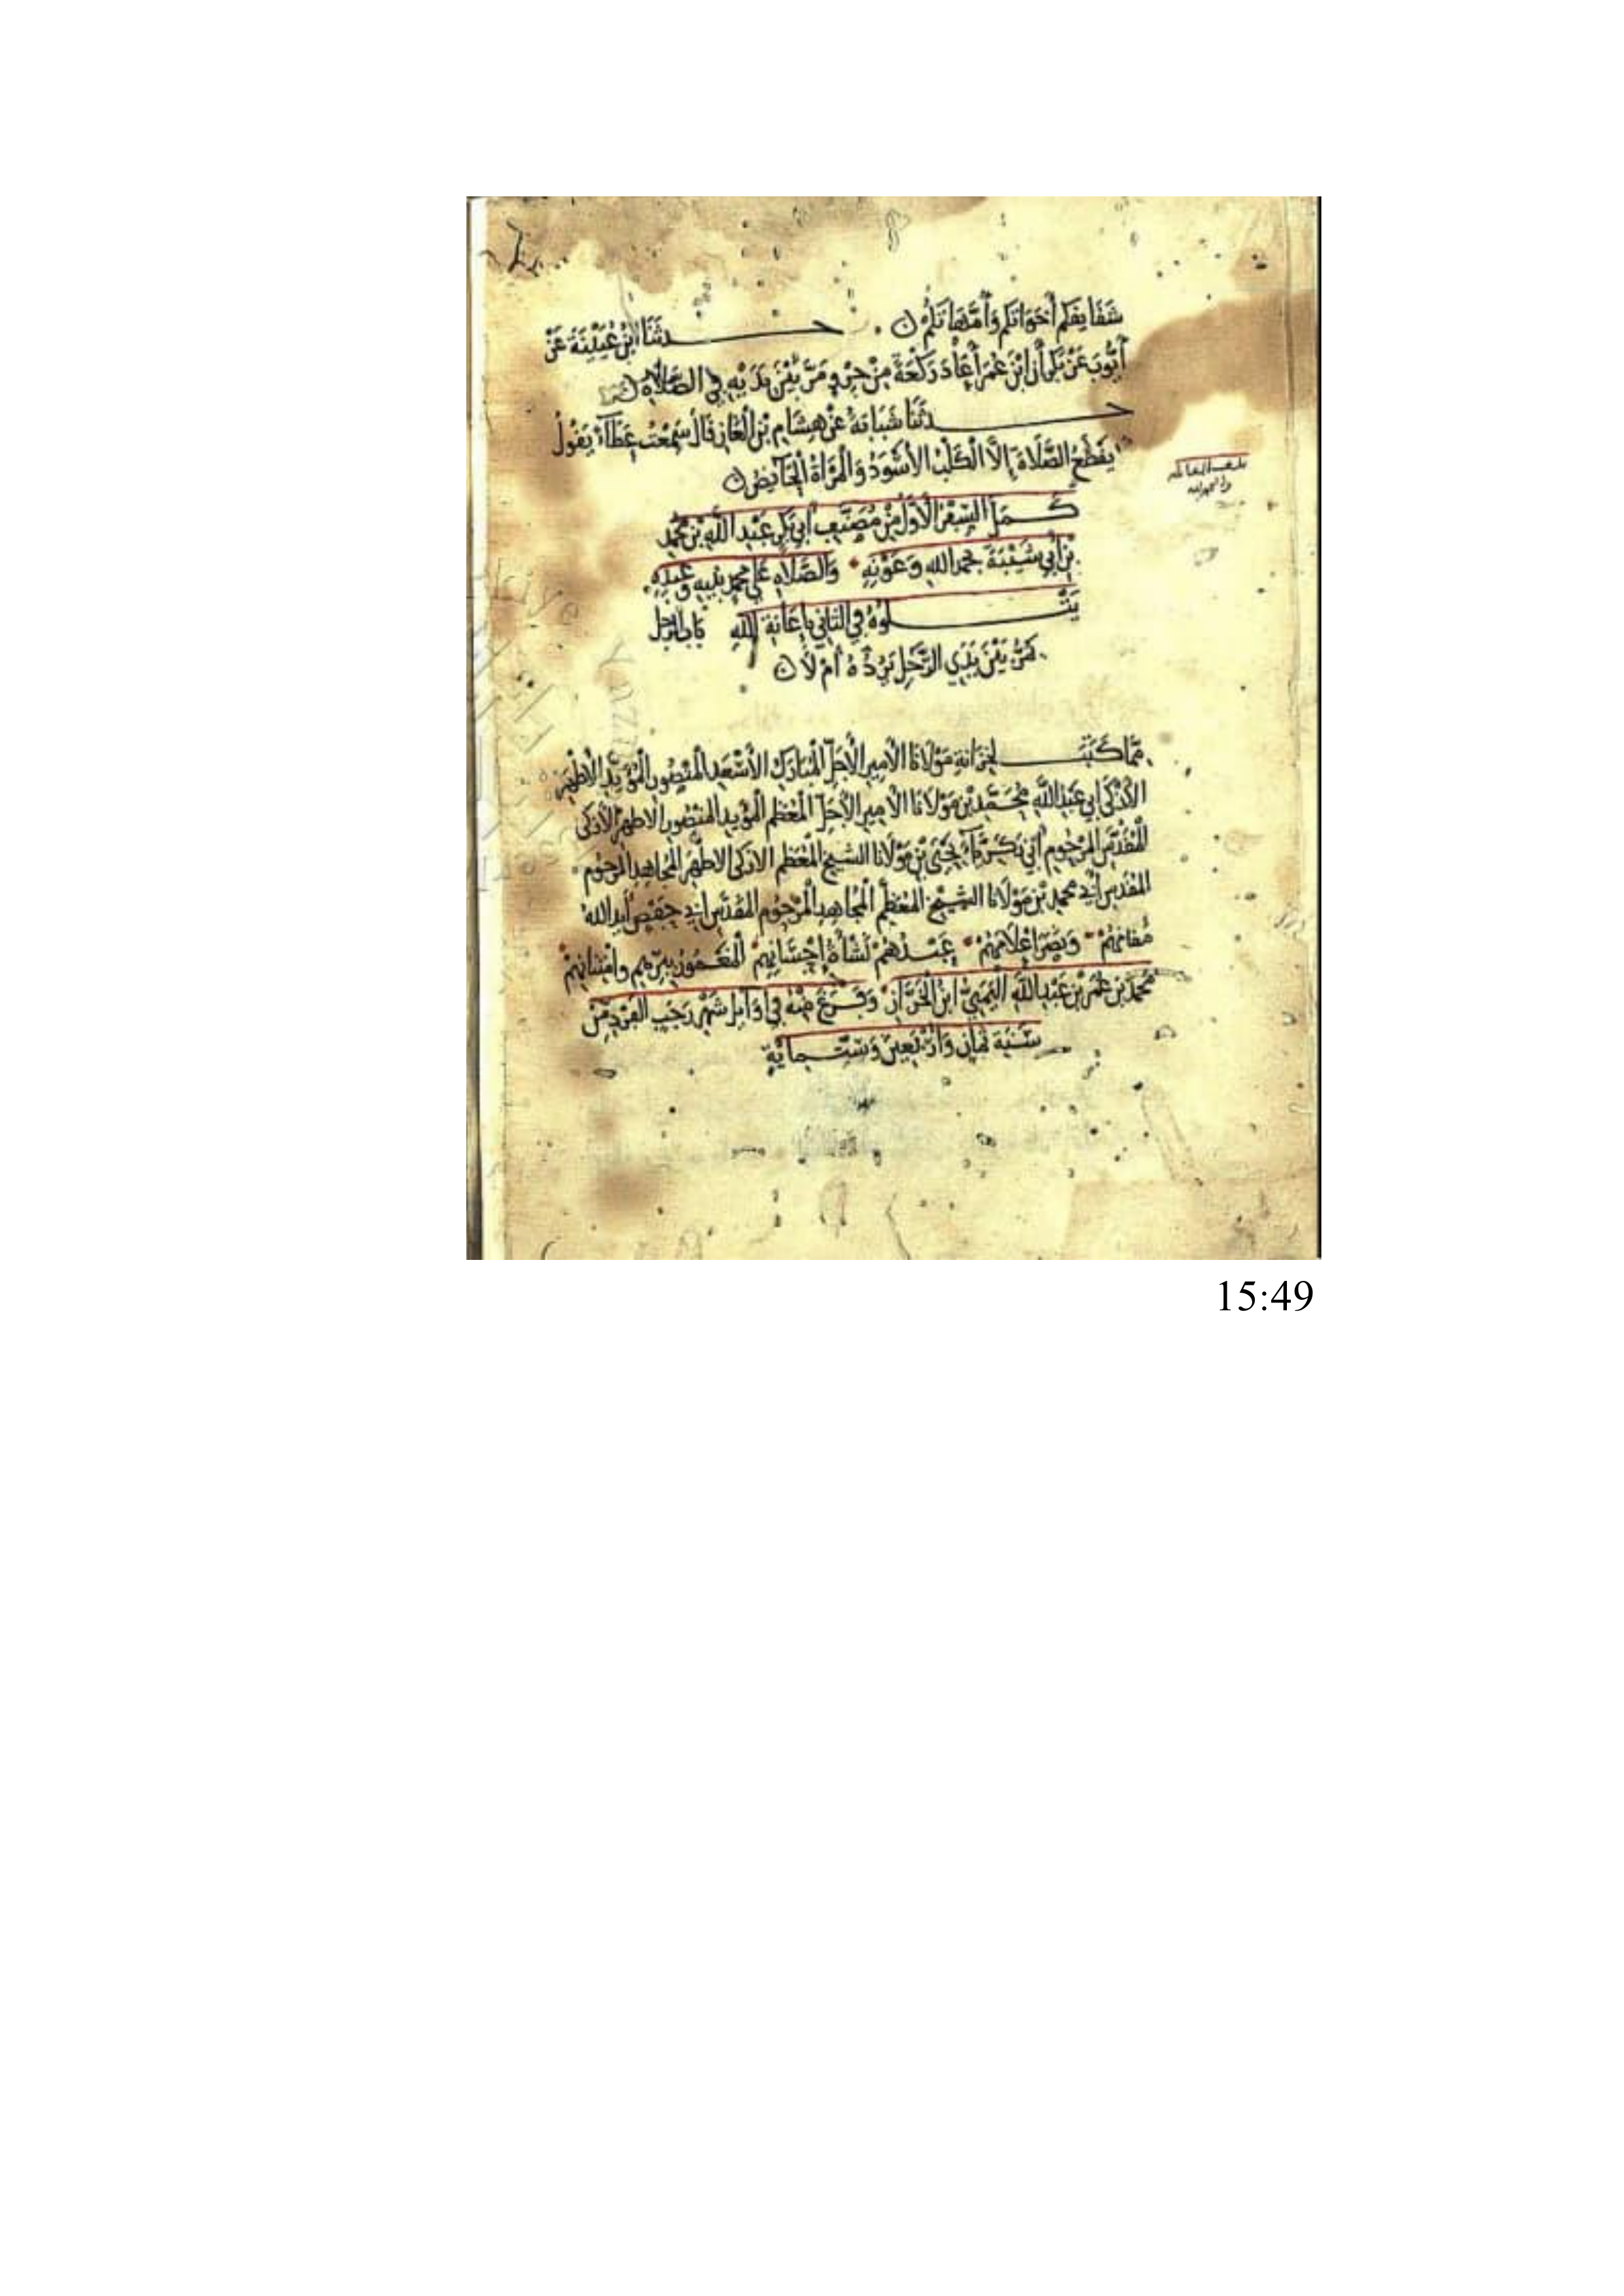 شقايقكم أخواتكم وأمهاتكم حدثنا ابن عيينة عن
أيوب عن بكر أن ابن عمر أعاد ركعة من جرو مر بين يديه في الصلاة
حدثنا شبابة عن هشام بن الغاز قال سمعت عطاء يقول
يقطع الصلاة إلا الكلب الأسود والمرأة الحائض
كمل السفر الأول من مصنف أبي بكر عبد الله بن محمد
بن أبي شيبة بحمد الله وعونه والصلاة على محمد نبيه وعبده
يتلوه في الثاني بإعانة الله باب الرجل
يمر بين يدي الرجل يرده أم لا
مما كتب لخزانة مولانا الأمير الأجل المبارك الأسعد المنصور المؤيد الأطهر
الأزكى أبي عبد الله محمد بن مولانا الأمير الأجل المعظم المؤيد المنصور الأطهر الأزكى
المقدس المرحوم أبي زكرياء يحيى بن مولانا الشيخ المعظم الأزكى الأطهر المجاهد المرحوم
المقدس أبي محمد بن مولانا الشيخ المعظم المجاهد المرحوم المقدس أبي حفص أيد الله
مقامهم ونصر أعلامهم عبدهم نشأة إحسانهم المغمور ببرهم وامتنانهم
محمد بن عمر بن عبد الله التميمي ابن الخراز وفرغ منه في أواخر شهر رجب الفرد من
سنة ثمان وأربعين وستماية
15:49